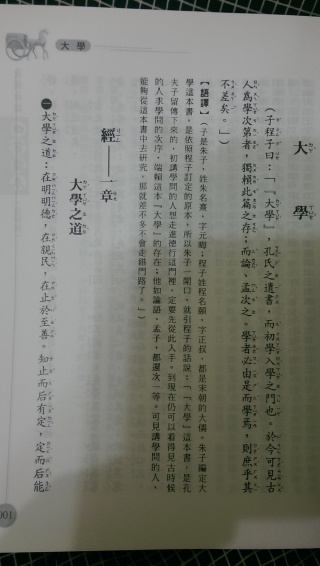 大學
大學
(子程子曰:「『大學』,孔氏之遺書,而初學入學之門也。於今可見古
人為學次第者,獨賴此篇之存;而論、孟次之。學者必由是而學焉,則庶乎其
不差矣。」)
【語譯】(子是朱子,姓朱名熹,字元晦;程子姓程名頤,字正叔,都是宋朝的大儒。朱子編定大
學這本書,是依照程子訂定的原本,所以朱子一開口,就引程子的話說:「『大學』這本書,是孔
夫子留傳下來的,初講學問的人想走進德行這門裡,一定要先從此入手。到現在仍可以看得見古時候
的人求學問的次序,端賴這本『大學』的存在;他如論語、孟子,都還次一等。可見講學問的人,
能夠從這本書中去研究,那就差不多不會走錯門路了。」)
經——章
大學之道
一 大學之道:在明明德,在親民,在止於至善。知止而后有定,定而后能
001